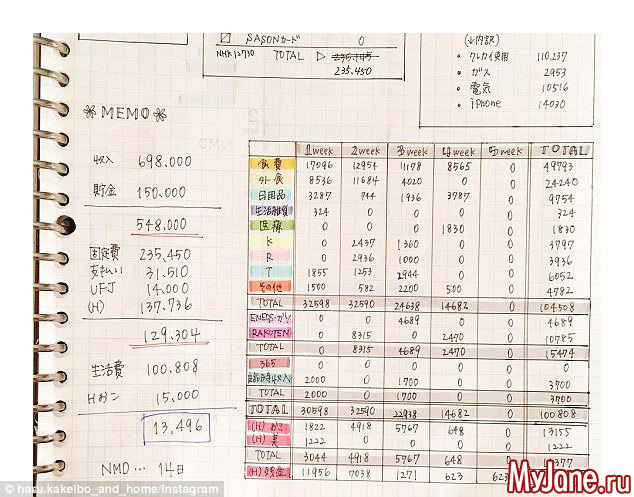 SAISONカード 0
NHK12730 TOTAL ▷ 235.445
235.450
(↓内訳)
• クレカイ使用 110.237
• ガス 2953
• 電気 10516
• iPhone 14030
※MEMO※
収入 698.000
貯金 150.000
548.000
固定費 235,450
支払い 31.510
UFJ 14.000
(H) 137.736
129.304
生活費 100.808
Hみこ 15,000
13,496
NMD… 14日
1week 2week 3week 4week 5week TOTAL
食費 17096 12954 11178 8565 0 49793
外食 8536 11684 4020 0 0 24240
日用品 3287 744 1936 3787 0 9754
生活雑貨 324 0 0 0 0 324
医療 0 0 0 1830 0 1830
K 0 2437 1360 0 0 3797
R 0 2936 1000 0 0 3936
T 1855 1253 2944 0 0 6052
その他 1500 582 2200 500 0 4782
TOTAL 32598 32590 24638 14682 0 104508
ENEOS・ガソ 0 0 4689 0 0 4689
RAKUTEN 0 8315 0 2470 0 10785
TOTAL 0 8315 4689 2470 0 15474
365 0 0 0 0 0 0
臨時収入 2000 0 1700 0 0 3700
TOTAL 2000 0 1700 0 0 3700
TOTAL 30598 32590 22938 14682 0 100808
(H) 1822 4918 5767 648 0 13155
(H) 美 1222 0 0 0 0 1222
TOTAL 3044 4918 5767 648 0 377
(H) 残金 11956 7038 1271 623 623
© haru.kakeibo_and_home/Instagram
MyJane.ru